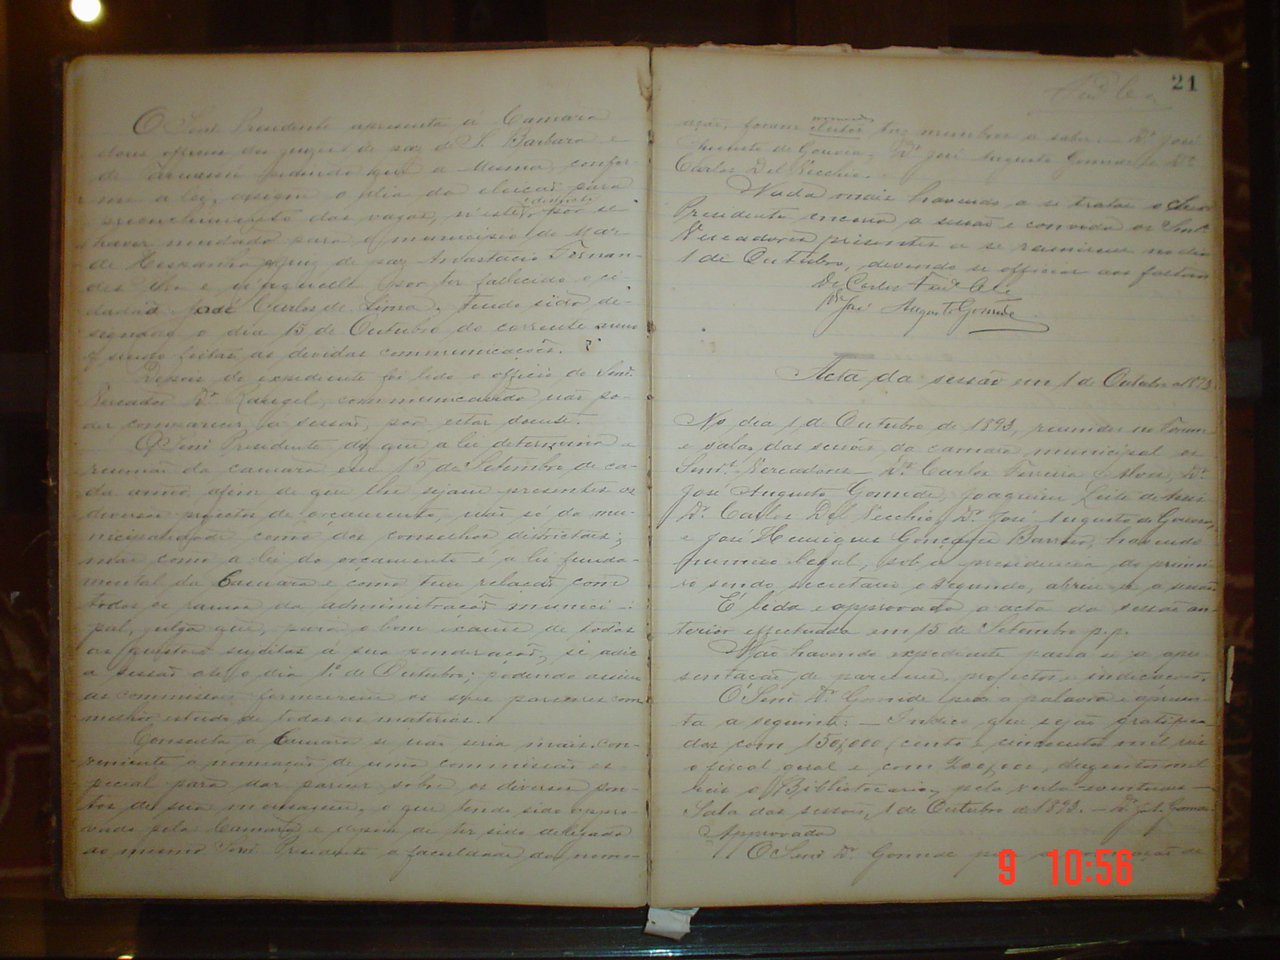 O Senr Presidente apresenta á Camara
dous officios dos juizes de paz de S. Barbara e
de pedindo que a mesma, confor-
me a lei, o dia da eleição para
preenchimento das vagas, n'este, districto por se
haver mudado para o municipio de Mar
de Hespanha o juiz de paz Anastacio Fernan-
des e n'aquelle por ter fallecido o ci-
dadão José Carlos de Lima, tendo sido de-
signado o dia 15 de Outubro do corrente anno
e sendo feitas as devidas communicações.
Depois do expediente foi lido o officio do Senr.
Vereador Dr Rangel, communicando não po-
der comparecer a sessão, por estar doente.
O Senr Presidente diz que a lei determina a
reunião da camara em 15 de Setembro de ca-
da anno, afim de que lhe sejam presentes os
diversos projectos de orçamento, não só da mu-
nicipalidade como dos conselhos districtaes;
mas como a lei do orçamento é a lei funda-
mental da Camara e como tem relação com
todos os ramos da administração munici-
pal, julga que, para o bom exame de todas
as questões sujeitas á sua ponderação, se adie
a sessão até o dia 1º de Outubro; podendo assim
as commissões fornecerem os seus pareceres com
melhor estudo de todas as materias.
Consulta a Camara se não seria mais con-
veniente a nomeação de uma commissão es-
pecial para dar parecer sobre os diversos pon-
tos de sua mensagem, o que tendo sido appro-
vado pela Camara e depois de ter sido delegado
ao mesmo Senr Presidente a faculdade da nome-
21
ação, foram tres membros a saber: - Dr José
Augusto de Gouvea, Dr José Augusto Gomide e Dr
Carlos Del Vecchio.
Nada mais havendo a se tratar o Senr
Presidente encerra a sessão e convida os Senrs
Vereadores presentes a se reunirem no dia
1 de Outubro, devendo se officiar aos faltosos
Dr Carlos Ferra Alves
Dr José Augusto Gomide
Acta da sessão em 1 de Outubro 1893.
No dia 1 de Outubro de 1893, reunidos no Forum
e sala das sessões da camara municipal os
Senrs. Vereadores - Dr. Carlos Ferreira Alves, Dr.
José Augusto Gomide, Joaquim Leite de Assis
Dr. Carlos Del Vecchio, Dr. José Augusto de Gouvea,
e José Henriques Barros, havendo
numero legal, sob a presidencia do primei-
ro sendo secretario o segundo, abriu-se a sessão
É lida e approvada a acta da sessão an-
terior effectuada em 15 de Setembro p.p.
Não havendo expediente passa-se a apre-
sentação de pareceres, projectos e indicações.
O Senr Dr Gomide pede a palavra e apresen-
ta a seguinte: - Indico que sejão gratifica-
dos com 150,000, cento e cincoenta mil reis
o fiscal geral e com 200,000, duzentos mil
reis o Bibliothecario, pela verba eventuaes -
Sala das sessões, 1 de Outubro de 1893. - Dr José Gomide
Approvado
O Senr Dr. Gomide de
9 10:56